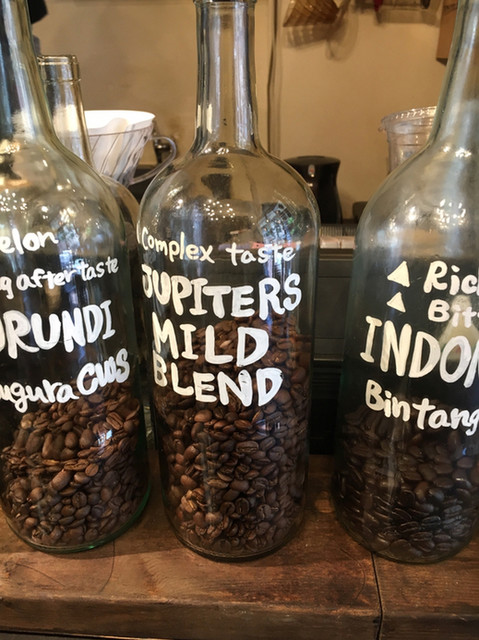 elon
g after taste
RUNDI
ugura CWS
Complex taste
JUPITERS
MILD
BLEND
Rich
Bit
INDON
Bintang